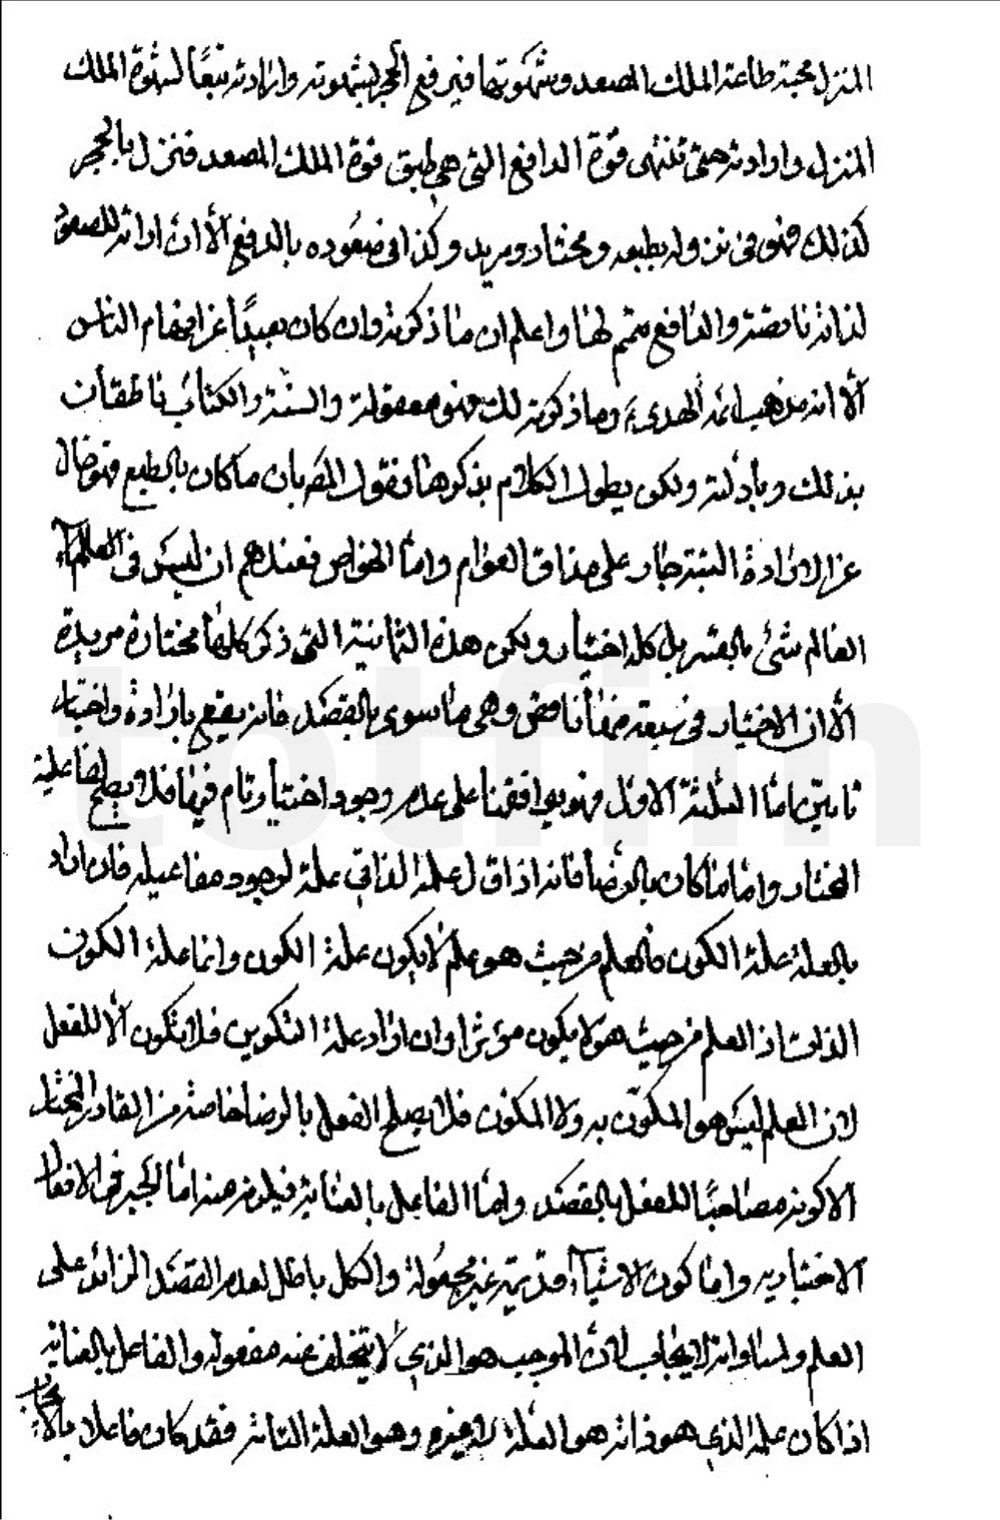 المنزل محبة طاعة الملك المصعد وشهوتها فيرفع الحجر بشهوته وارادته تبعًا لشهوة الملك
المنزل وارادته حتى تنتهى قوة الدافع التى هى طبق قوة الملك المصعد فنزل بالحجر
كذلك فهو فى نزوله بطبعه ومختار ومريد وكذا فى صعوده بالدفع الّا انّ ارادته للصعود
لذاته ناقصة والدافع متمم لها واعلم ان ما ذكرته وان كان بعيدًا عن افهام الناس
الّا انه مذهب ائمة الهدىع وما ذكرته لك فهو معقوله والسنة والكتاب ناطقان
بذلك وبادلته ولكن يطول الكلام بذكرها وقول المص بان ما كان بالطبع فهو خال
عن الارادة البتة جار على مذاق العوام وامّا الخواص فعندهم ان ليس فى
العالم شئ بالقسر بل كله اختيار ولكن هذه الثمانية التى ذكر كلها مختارة مريدة
الّا ان الاختيار فى سبعة منها ناقص وهى ما سوى بالقصد فانه يقع بارادة واختيار
ثابتين امّا الثلثة الاول فهو يوافقنا على عدم وجود اختيار تام فيها فلا يصلح لفاعلية
المختار واما ما كان بالرضا فانه اذا قال علمه الذاتى علة لوجود مفاعيله فان اراد
بالعلة علة الكون فالعلم من حيث هو علم لا يكون علة الكون وانما علة الكون
الذات اذ العلم من حيث هو لا يكون مؤثرا وان اراد علة التكوين فلا تكون الّا للفعل
لان العلم ليس هو المكوّن به ولا المكون فلا يصلح الفعل بالرضا خاصة من القادر المختار
الا كونه مصاحبًا للفعل بالقصد وامّا الفاعل بالعناية فيلزم منه امّا الجبر فى الافعال
الاختيارية واما كون الاشياء قديمة غير مجعولة والكل باطل لعدم القصد الزائد على
العلم ولمساواته الايجاب لان الموجب هو الذى لا يتخلف عنه مفعوله والفاعل بالعناية
اذا كان علمه الذى هو ذاته هو العلة لا غيره وهو العلة التامة فقد كان فاعلا بالايجاب